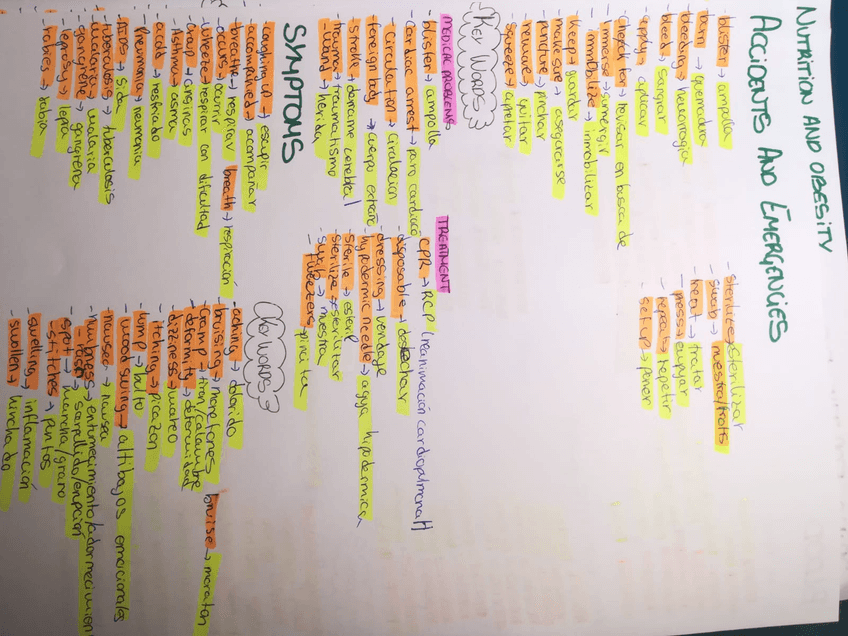 NUTRITION AND OBESITY
ACCIDENTS AND EMERGENCIES
- blister → ampolla
- burn → quemadura
- bleeding → hemorragia
- bleed → sangrar
- apply → aplicar
- check for → revisar en busca de
- immerse → sumergir
- immobilize → inmobilizar
- keep → guardar
- make sure → asegurarse
- puncture → pinchar
- remove → quitar
- squeeze → apretar
- sterilize → esterilizar
- swab → muestra/frotis
- treat → tratar
- press → apoyar
- repeat → repetir
- set up → poner
KEY WORDS
MEDICAL PROBLEMS
- blister → ampolla
- cardiac arrest → paro cardiaco
- circulation → circulacion
- foreign body → cuerpo extraño
- stroke → derrame cerebral
- trauma → traumatismo
- wound → herida
TREATMENT
- CPR → RCP (reanimación cardiopulmonar)
- disposable → desechar
- dressing → vendaje
- hypodermic needle → aguja hipodermica
- sterile → esteril
- sterilize → esterilizar
- swab → muestra
- tweezers → pinzas
SYMPTOMS
- coughing up → escupir
- accompanied → acompañar
- breathe → respirar breath → respiracion
- occurs → ocurrir
- wheeze → respirar con dificultad
- croup → anginas
- Asthma → asma
- cold → resfriado
- Pneumonia → neumonia
- AIDS → sida
- tuberculosis → tuberculosis
- malaria → malaria
- gangrene → gangrena
- leprosy → lepra
- rabies → rabia
KEY WORDS
- aching → dolorido
- bruising → moretones bruise → moraton
- cramp → tiron/calambre
- deformity → deformidad
- dizziness → mareo
- itching → picazon
- lump → bulto
- mood swing → altibajos emocionales
- nausea → nausea
- numbness → entumecimiento/adormecimiento
- rash → sarpullido/erupcion
- spot → mancha/grano
- stitches → puntos
- swelling → inflamación
- swollen → hinchado